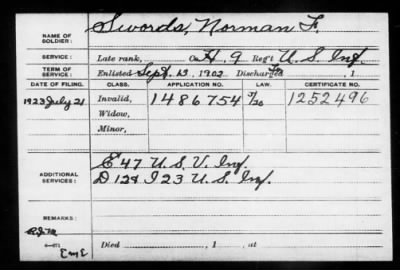 NAME OF SOLDIER: Swords, Norman F.
SERVICE: Late rank, Co H, 9 Reg't U. S. Inf.
TERM OF SERVICE: Enlisted Sept. 13, 1902 Discharged , 1
DATE OF FILING. CLASS. APPLICATION NO. LAW. CERTIFICATE NO.
1923 July 21 Invalid, 1486754 1252496
Widow,
Minor,
ADDITIONAL SERVICES: E 47 U. S. V. Inf.
D 128 I 23 U. S. Inf.
REMARKS:
Died , 1 , at